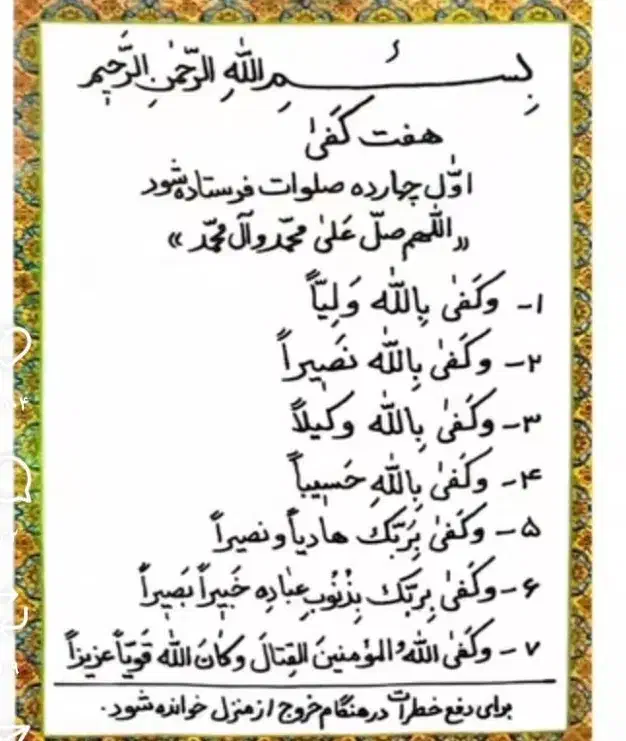 بِسْمِ اللهِ الرَّحْمٰنِ الرَّحیمِ
هفت کَفیٰ
اوّل چهارده صلوات فرستاده شود
«اللّهم صلّ عَلیٰ محمّد و آل محمّد»
۱- وَکَفیٰ بِاللّه وَلِیّاً
۲- وکَفیٰ بِاللّه نَصیراً
۳- وکَفیٰ بِاللّه وَکیلاً
۴- وکَفیٰ بِاللّهِ حَسیباً
۵- وکَفیٰ بِرَبِّک هادیاً و نصیراً
۶- وکَفیٰ بِربّک بِذُنُوبِ عِبادِه خَبیراً بَصیراً
۷- وکَفیٰ اللّه المؤمنینَ القِتالَ وکانَ اللّه قَویّاً عزیزاً
برای دفع خطرات در هنگام خروج از منزل خوانده شود.